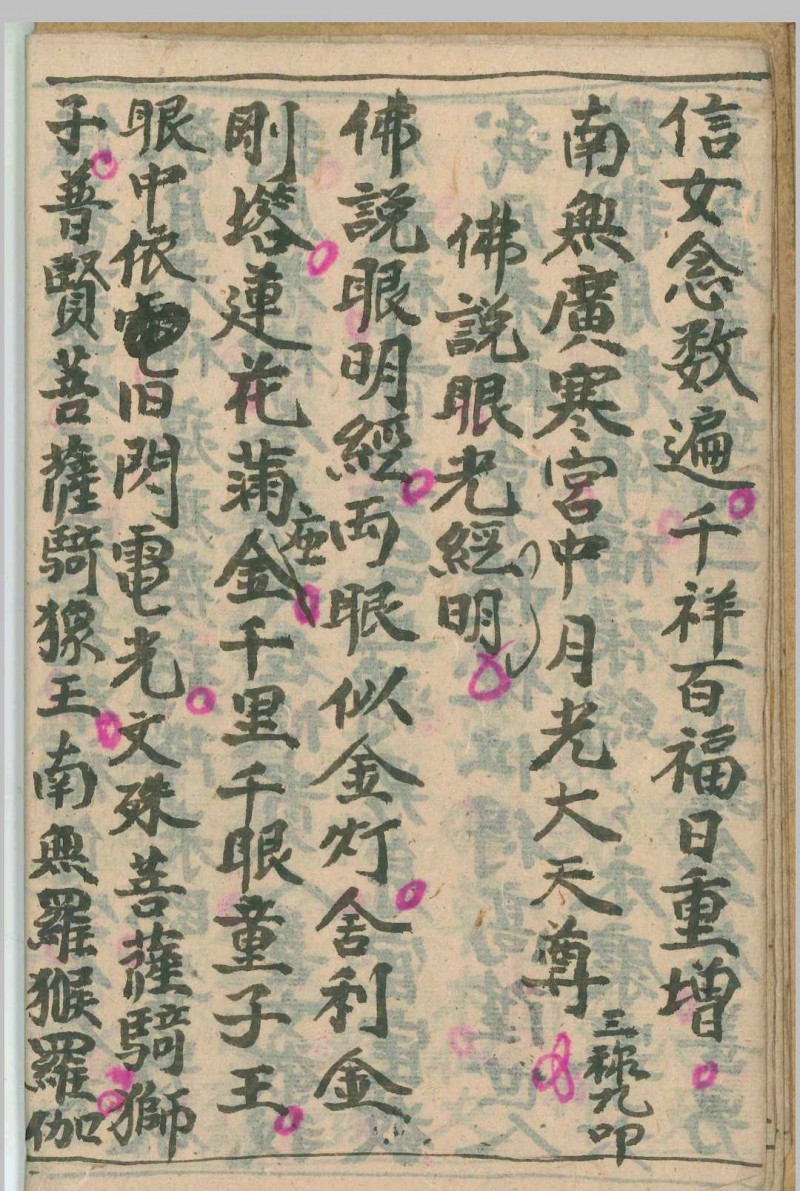 信女念数遍千祥百福日重增
南無廣寒宮中月光大天尊三称九叩
佛說眼光經明
佛說眼明經両眼似金灯舍利金
剛塔蓮花蒲金座千里千眼童子王
眼中依電旧閃電光文殊菩薩騎獅
子普賢菩薩騎猿王南無羅猴羅伽